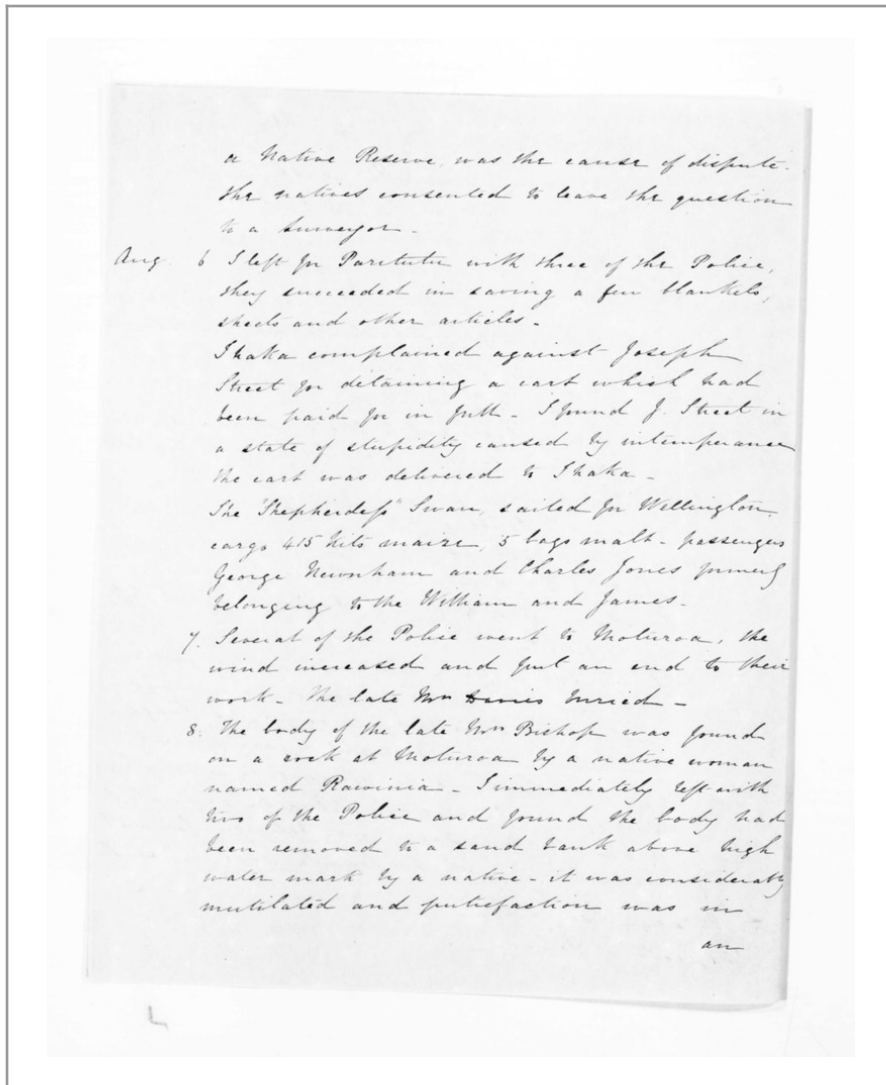 a Native Reserve, was the cause of dispute.
the natives consented to leave the question
to a Surveyor -
Aug. 6 I left for Paritutu with three of the Police,
they succeeded in saving a few blankets,
sheets and other articles -
Ihaka complained against Joseph
Street for detaining a cart which had
been paid for in full - I found J. Street in
a state of stupidity caused by intemperance
the cart was delivered to Ihaka -
The "Shepherdess" Swan, sailed for Wellington,
cargo 415 kits maize, 5 bags malt - passengers
George Newnham and Charles Jones formerly
belonging to the William and James -
7. Several of the Police went to Moturoa, the
wind increased and put an end to their
work - the late Mrs Davies buried -
8. The body of the late Mrs Bishop was found
on a rock at Moturoa by a native woman
named Rawinia - I immediately left with
two of the Police and found the body had
been removed to a sand bank above high
water mark by a native - it was considerably
mutilated and putrefaction was in
an